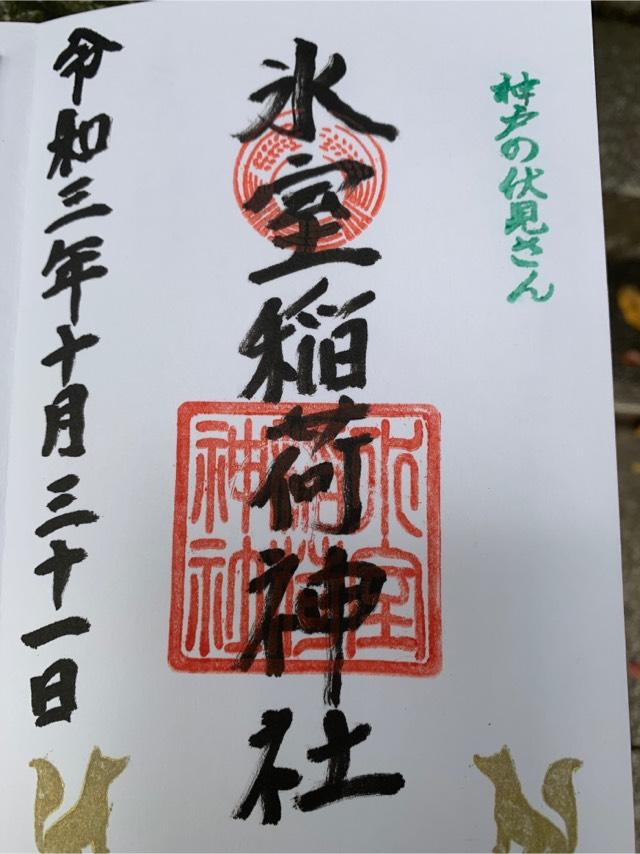 神戸の伏見さん
氷室稲荷神社
氷室
稲荷
神社
令和三年十月三十一日